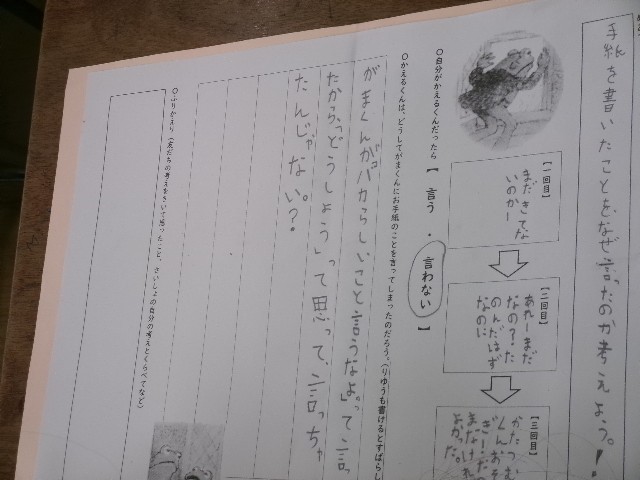 手紙を書いたことを、なぜ言ったのか考えよう。!
【一回目】
まだきてな
いのかー
【二回目】
あれーまだ
なの?た
のんだはず
なのに
【三回目】
かたつむ
くんおそ
ぎー!だっ
まなければ
よかった。
○自分がかえるくんだったら【 言う ・ 言わない 】
○かえるくんは、どうしてがまくんにお手紙のことを言ってしまったのだろう。(りゆうも書けるとすばらし
がまくんが「バカらしいこと言うなよ。」って言っ
たから、「どうしょう」って思って、言っちゃ
たんじゃない。?
○ふりかえり(友だちの考えをきいて思ったこと、さいしょの自分の考えとくらべてなど)